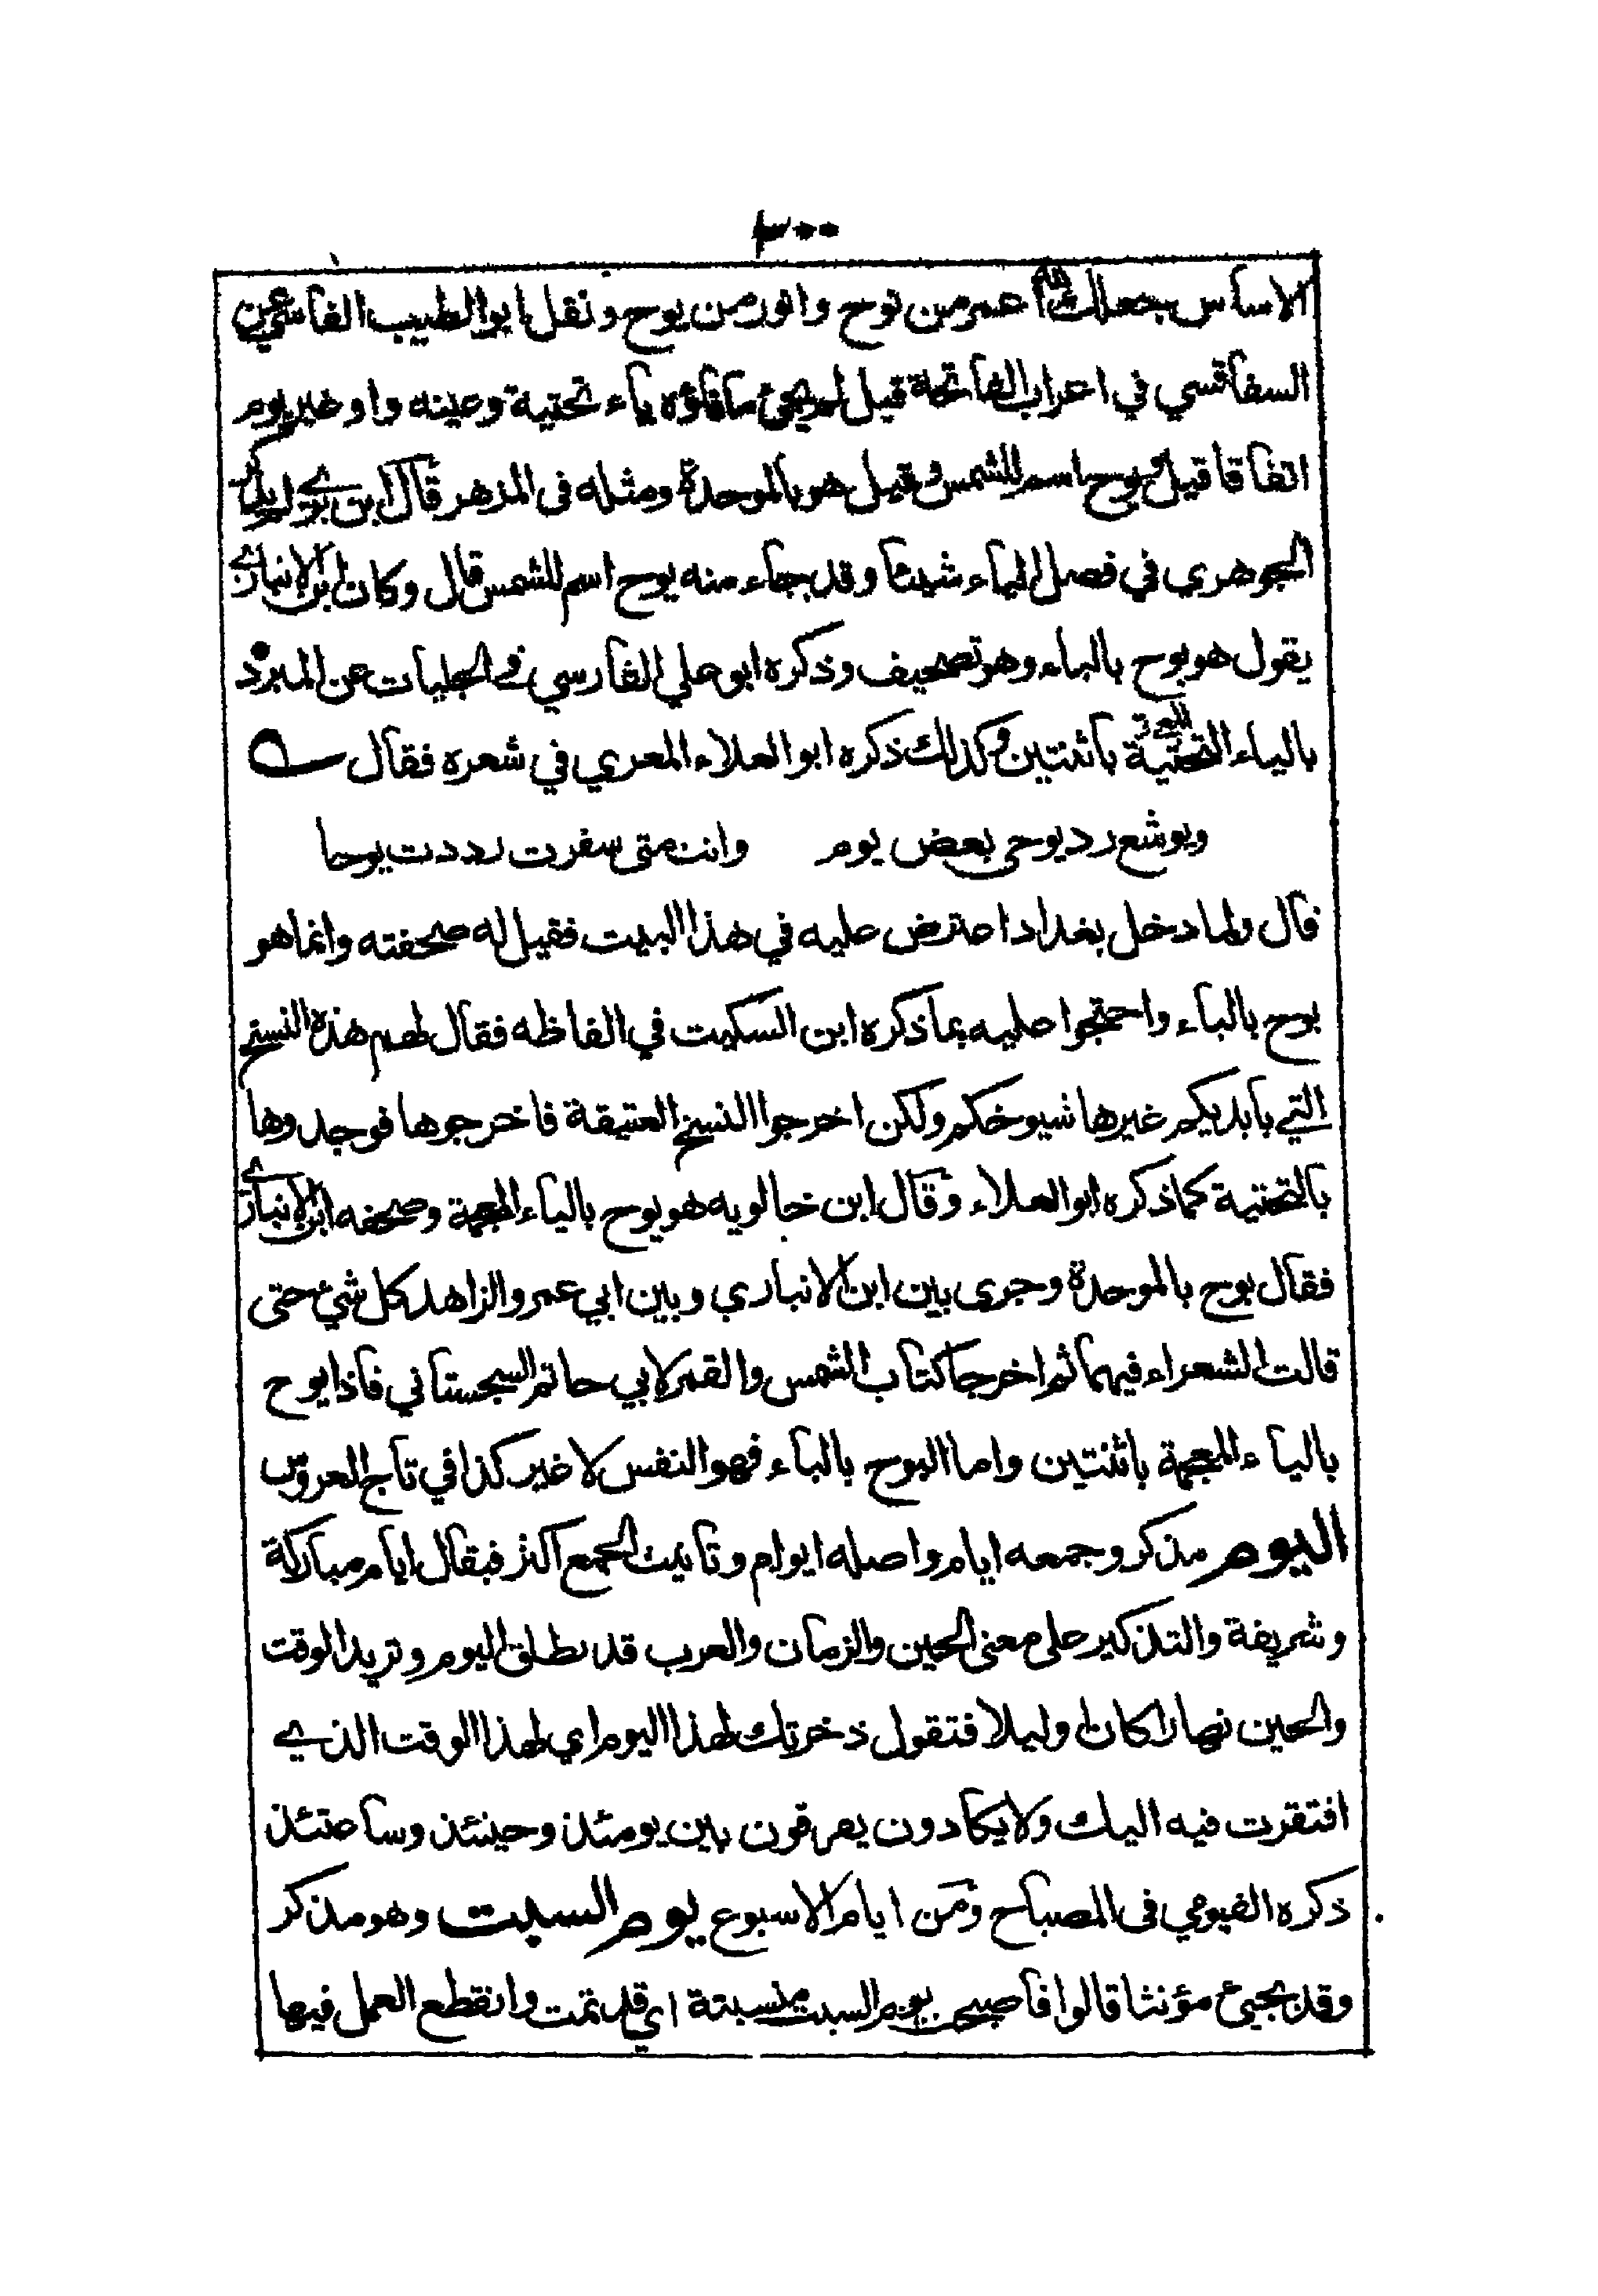 ٣٠٠
الاساس بجعلك الله اعمر من نوح وانور من يوح ونقل ابو الطيب الفاسي عن
السفاقسي في اعراب الفاتحة قيل لم يجئ ما فاؤه ياء تحتية وعينه واو غير يوم
اتفاقا قيل ويوح اسم للشمس وقيل هو بالموحدة ومثله فى المزهر قال ابن بري لم يذكر
الجوهري في فصل الياء شيئا وقد جاء منه يوح اسم للشمس قال وكان ابن الانباري
يقول هو بوح بالباء وهو تصحيف وذكره ابو علي الفارسي في الحلبيات عن المبرد
بالياء التحتية المعجمة باثنتين وكذلك ذكره ابو العلاء المعري في شعره فقال
ويوشع رد يوحى بعض يوم وانت متى سفرت رددت يوحا
قال ولما دخل بغداد اعترض عليه في هذا البيت فقيل له صحفته وانما هو
بوح بالباء واحتجوا عليه بما ذكره ابن السكيت في الفاظه فقال لهم هذه النسخ
التي بايديكم غيرها شيوخكم ولكن اخرجوا النسخ العتيقة فاخرجوها فوجدوها
بالتحتية كما ذكره ابو العلاء وقال ابن خالويه هو يوح بالياء المعجمة وصحفه ابن الانباري
فقال بوح بالموحدة وجرى بين ابن الانباري وبين ابي عمر والزاهد كل شئ حتى
قالت الشعراء فيهما ثم اخرجا كتاب الشمس والقمر لابي حاتم السجستاني فاذا يوح
بالياء المعجمة باثنتين واما البوح بالباء فهو النفس لا غير كذا في تاج العروس
اليوم مذكر وجمعه ايام واصله ايوام وتانيث الجمع اكثر فيقال ايام مباركة
وشريفة والتذكير على معنى الحين والزمان والعرب قد تطلق اليوم وتريد الوقت
والحين نهارا كان او ليلا فتقول ذخرتك لهذا اليوم اي لهذا الوقت الذي
افتقرت فيه اليك ولا يكادون يعرفون بين يومئذ وحينئذ وساعتئذ
ذكره الفيومي فى المصباح ومن ايام الاسبوع يوم السبت وهو مذكر
وقد يجيئ مؤنثا قالوا فاصبحت يوم السبت منسبتة اي قد تمت وانقطع العمل فيها